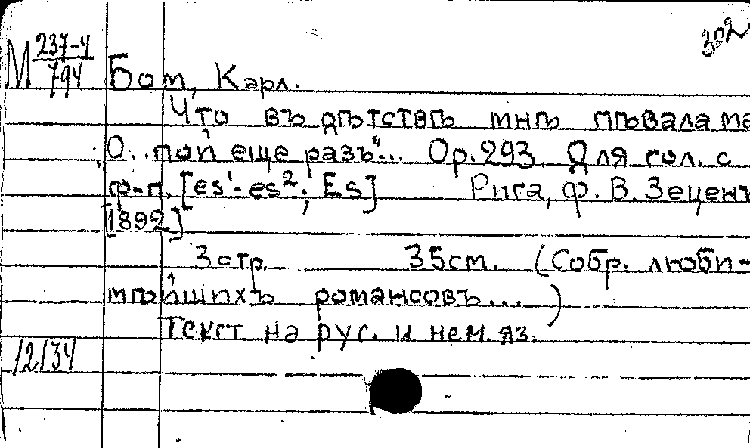 302
М 237-4/794
Бом, Карл.
Что въ дѣтствѣ мнѣ пѣвала ма
О.. пой еще разъ"... Ор.293. Для гол. с
ф-п. [es¹-es²; Es] Рига, ф. В. Зеценъ
[1892]
3 стр. 35см. (Собр. люби-
мѣйшихъ романсовъ...)
Текст на рус. и нем яз.
12/34